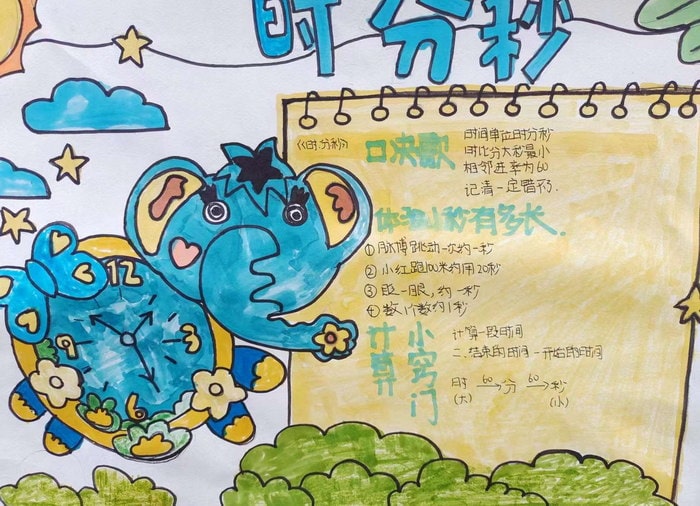 时分秒
《时分秒》
口决歌
时间单位时分秒
时比分大秒最小
相邻进率为60
记清一定错不了.
体验1秒有多长.
①脉博跳动一次约一秒
②小红跑100米约用20秒
③眨一眼,约一秒
④数1个数约1秒
计算小窍门
计算一段时间
二.结束的时间-开始的时间
时 60→ 分 60→ 秒
(大) (小)
12
9
6